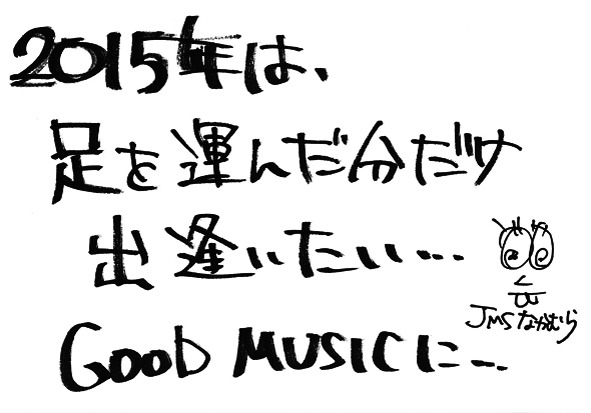 2015年は、
足を運んだ分だけ
出逢いたい…
JMSなかむら
GOOD MUSICに…